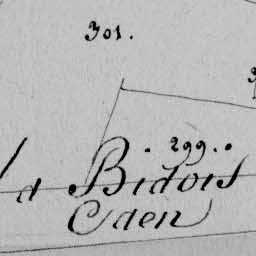 301.
. 299..
d Bidois
Caen